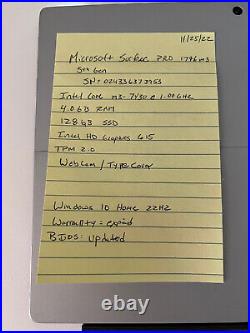 11/25/22
Microsoft Surface PRO 1796 m3
5th Gen
SN: 024336373953
Intel Core m3-7Y30 @ 1.00GHz
4.0GB RAM
128GB SSD
Intel HD Graphics 615
TPM 2.0
Webcam / Type Cover
Windows 10 Home 22H2
Warranty = expired
BIOS: Updated